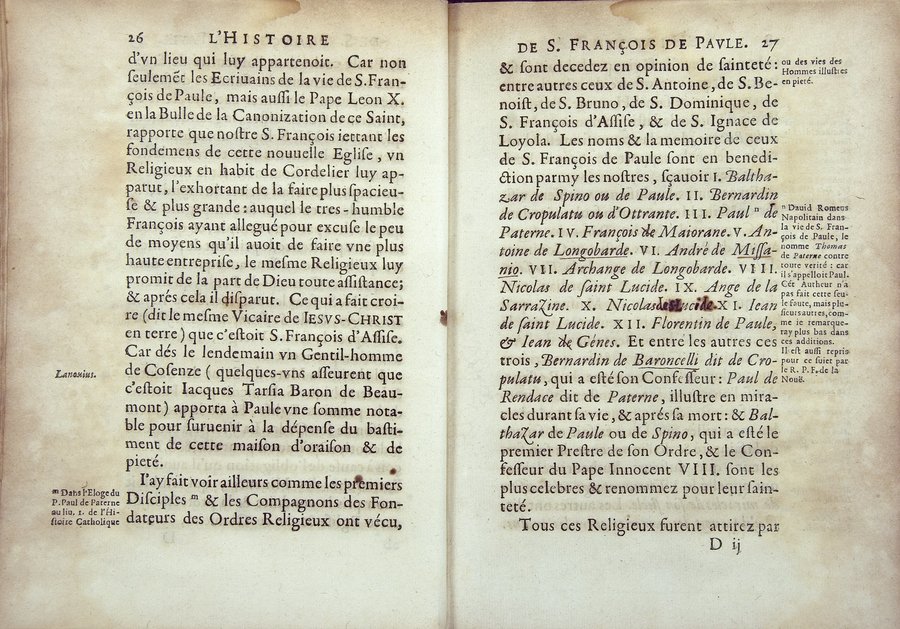 26 L'HISTOIRE
d'vn lieu qui luy appartenoit. Car non
ſeulemẽt les Ecriuains de la vie de S. Fran-
çois de Paule, mais auſſi le Pape Leon X.
en la Bulle de la Canonization de ce Saint,
rapporte que noſtre S. François iettant les
fondemens de cette nouuelle Egliſe, vn
Religieux en habit de Cordelier luy ap-
parut, l'exhortant de la faire plus ſpacieu-
ſe & plus grande: auquel le tres-humble
François ayant allegué pour excuſe le peu
de moyens qu'il auoit de faire vne plus
haute entrepriſe, le meſme Religieux luy
promit de la part de Dieu toute aſſiſtance;
& aprés cela il diſparut. Ce qui a fait croi-
re (dit le meſme Vicaire de IESVS-CHRIST
en terre) que c'eſtoit S. François d'Aſſiſe.
Car dés le lendemain vn Gentil-homme
de Coſenze (quelques-vns aſſeurent que
c'eſtoit Iacques Tarſia Baron de Beau-
mont) apporta à Paule vne ſomme nota-
ble pour ſuruenir à la dépenſe du baſti-
ment de cette maiſon d'oraiſon & de
pieté.
I'ay fait voir ailleurs comme les premiers
Diſciples ᵐ & les Compagnons des Fon-
dateurs des Ordres Religieux ont vécu,
Lanouius.
ᵐ Dans l'Eloge du
P. Paul de Paterne
au liu. 1. de l'Hi-
ſtoire Catholique
DE S. FRANÇOIS DE PAVLE. 27
& ſont decedez en opinion de ſainteté:
entre autres ceux de S. Antoine, de S. Be-
noiſt, de S. Bruno, de S. Dominique, de
S. François d'Aſſiſe, & de S. Ignace de
Loyola. Les noms & la memoire de ceux
de S. François de Paule ſont en benedi-
ction parmy les noſtres, ſçauoir I. Baltha-
zar de Spino ou de Paule. II. Bernardin
de Cropulatu ou d'Ottrante. III. Paul ⁿ de
Paterne. IV. François de Maiorane. V. An-
toine de Longobarde. VI. André de Miſſa-
nio. VII. Archange de Longobarde. VIII.
Nicolas de ſaint Lucide. IX. Ange de la
Sarrazine. X. Nicolas de S. Lucide. XI. Iean
de ſaint Lucide. XII. Florentin de Paule,
& Iean de Génes. Et entre les autres ces
trois, Bernardin de Baroncelli dit de Cro-
pulatu, qui a eſté ſon Confeſſeur: Paul de
Rendace dit de Paterne, illuſtre en mira-
cles durant ſa vie, & aprés ſa mort: & Bal-
thazar de Paule ou de Spino, qui a eſté le
premier Preſtre de ſon Ordre, & le Con-
feſſeur du Pape Innocent VIII. ſont les
plus celebres & renommez pour leur ſain-
teté.
Tous ces Religieux furent attirez par
D ij
ou des vies des
Hommes illuſtres
en pieté.
ⁿ Dauid Romeus
Napolitain dans
la vie de S. Fran-
çois de Paule, le
nomme Thomas
de Paterne contre
toute verité: car
il s'appelloit Paul.
Cét Autheur n'a
pas fait cette ſeu-
le faute, mais plu-
ſieurs autres, com-
me ie remarque-
ray plus bas dans
ces additions.
Il eſt auſſi repris
pour ce ſujet par
le R. P. F. de la
Nouë.